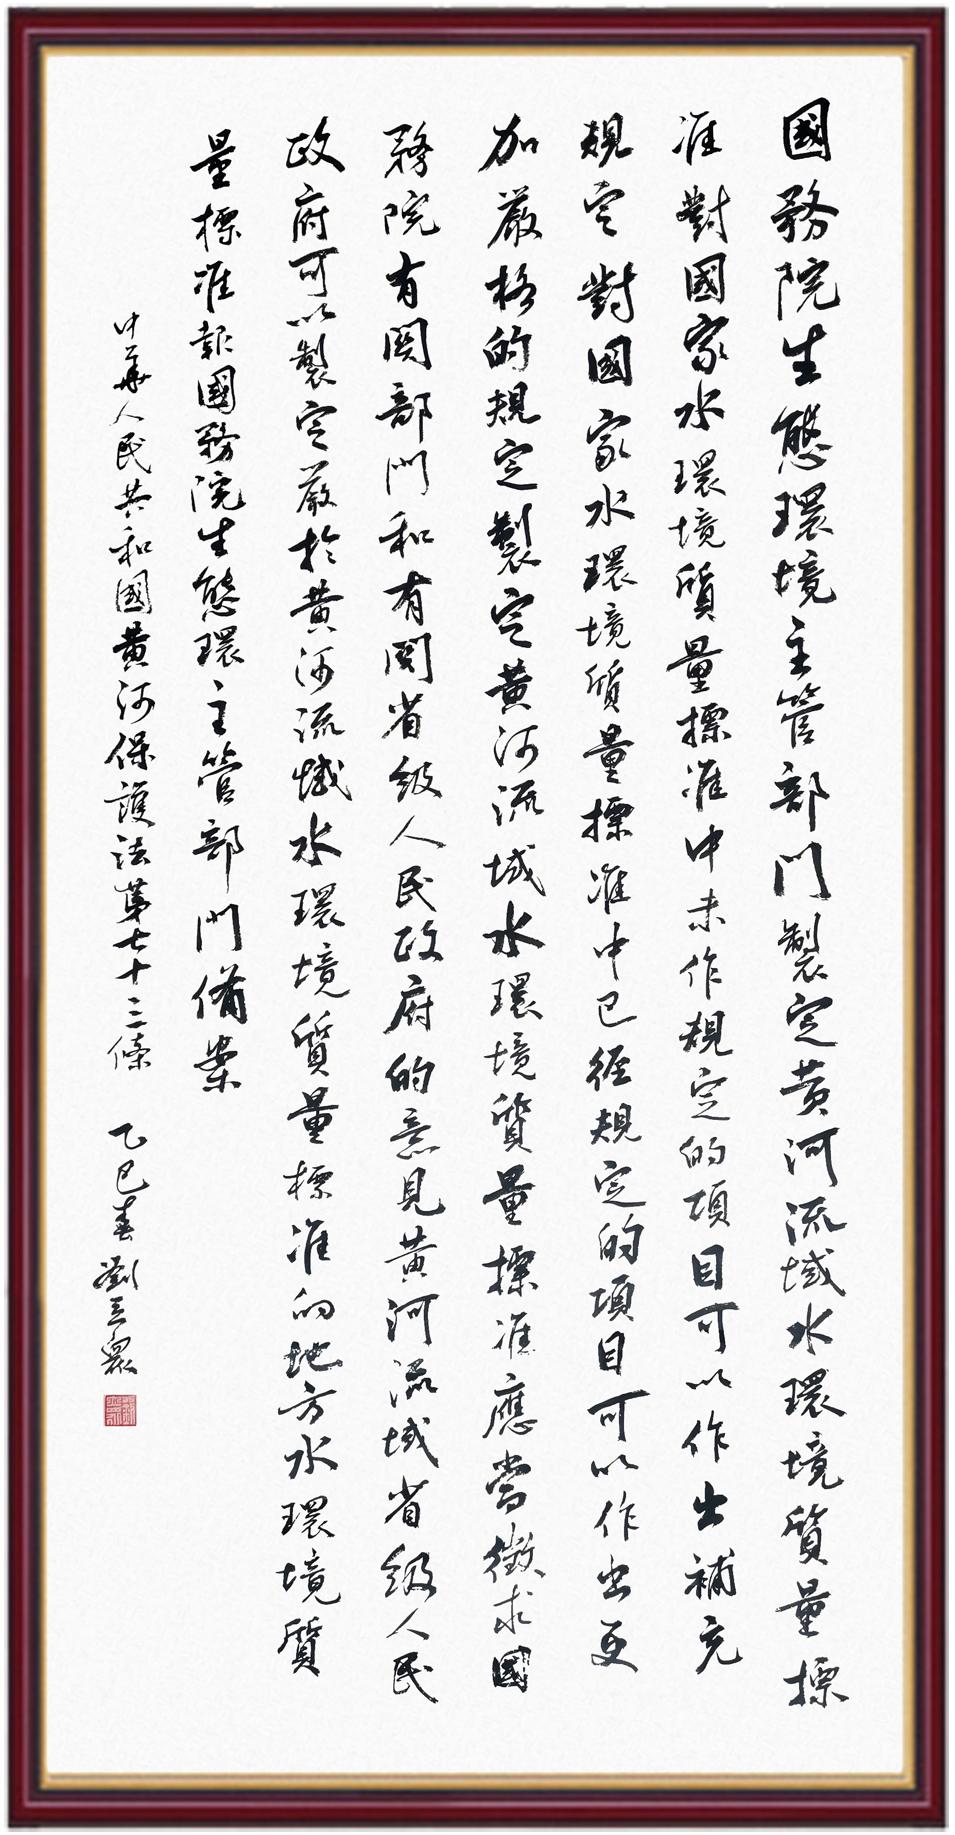 國務院生態環境主管部門製定黄河流域水環境質量標
准對國家水環境質量標准中未作規定的項目可以作出補充
規定對國家水環境質量標准中已經規定的項目可以作出更
加嚴格的規定製定黄河流域水環境質量標准應當徵求國
務院有関部門和有関省級人民政府的意見黄河流域省級人民
政府可以製定嚴於黄河流域水環境質量標准的地方水環境質
量標准報國務院生態環主管部門備案
中華人民共和國黄河保護法第七十三條 乙巳春 劉